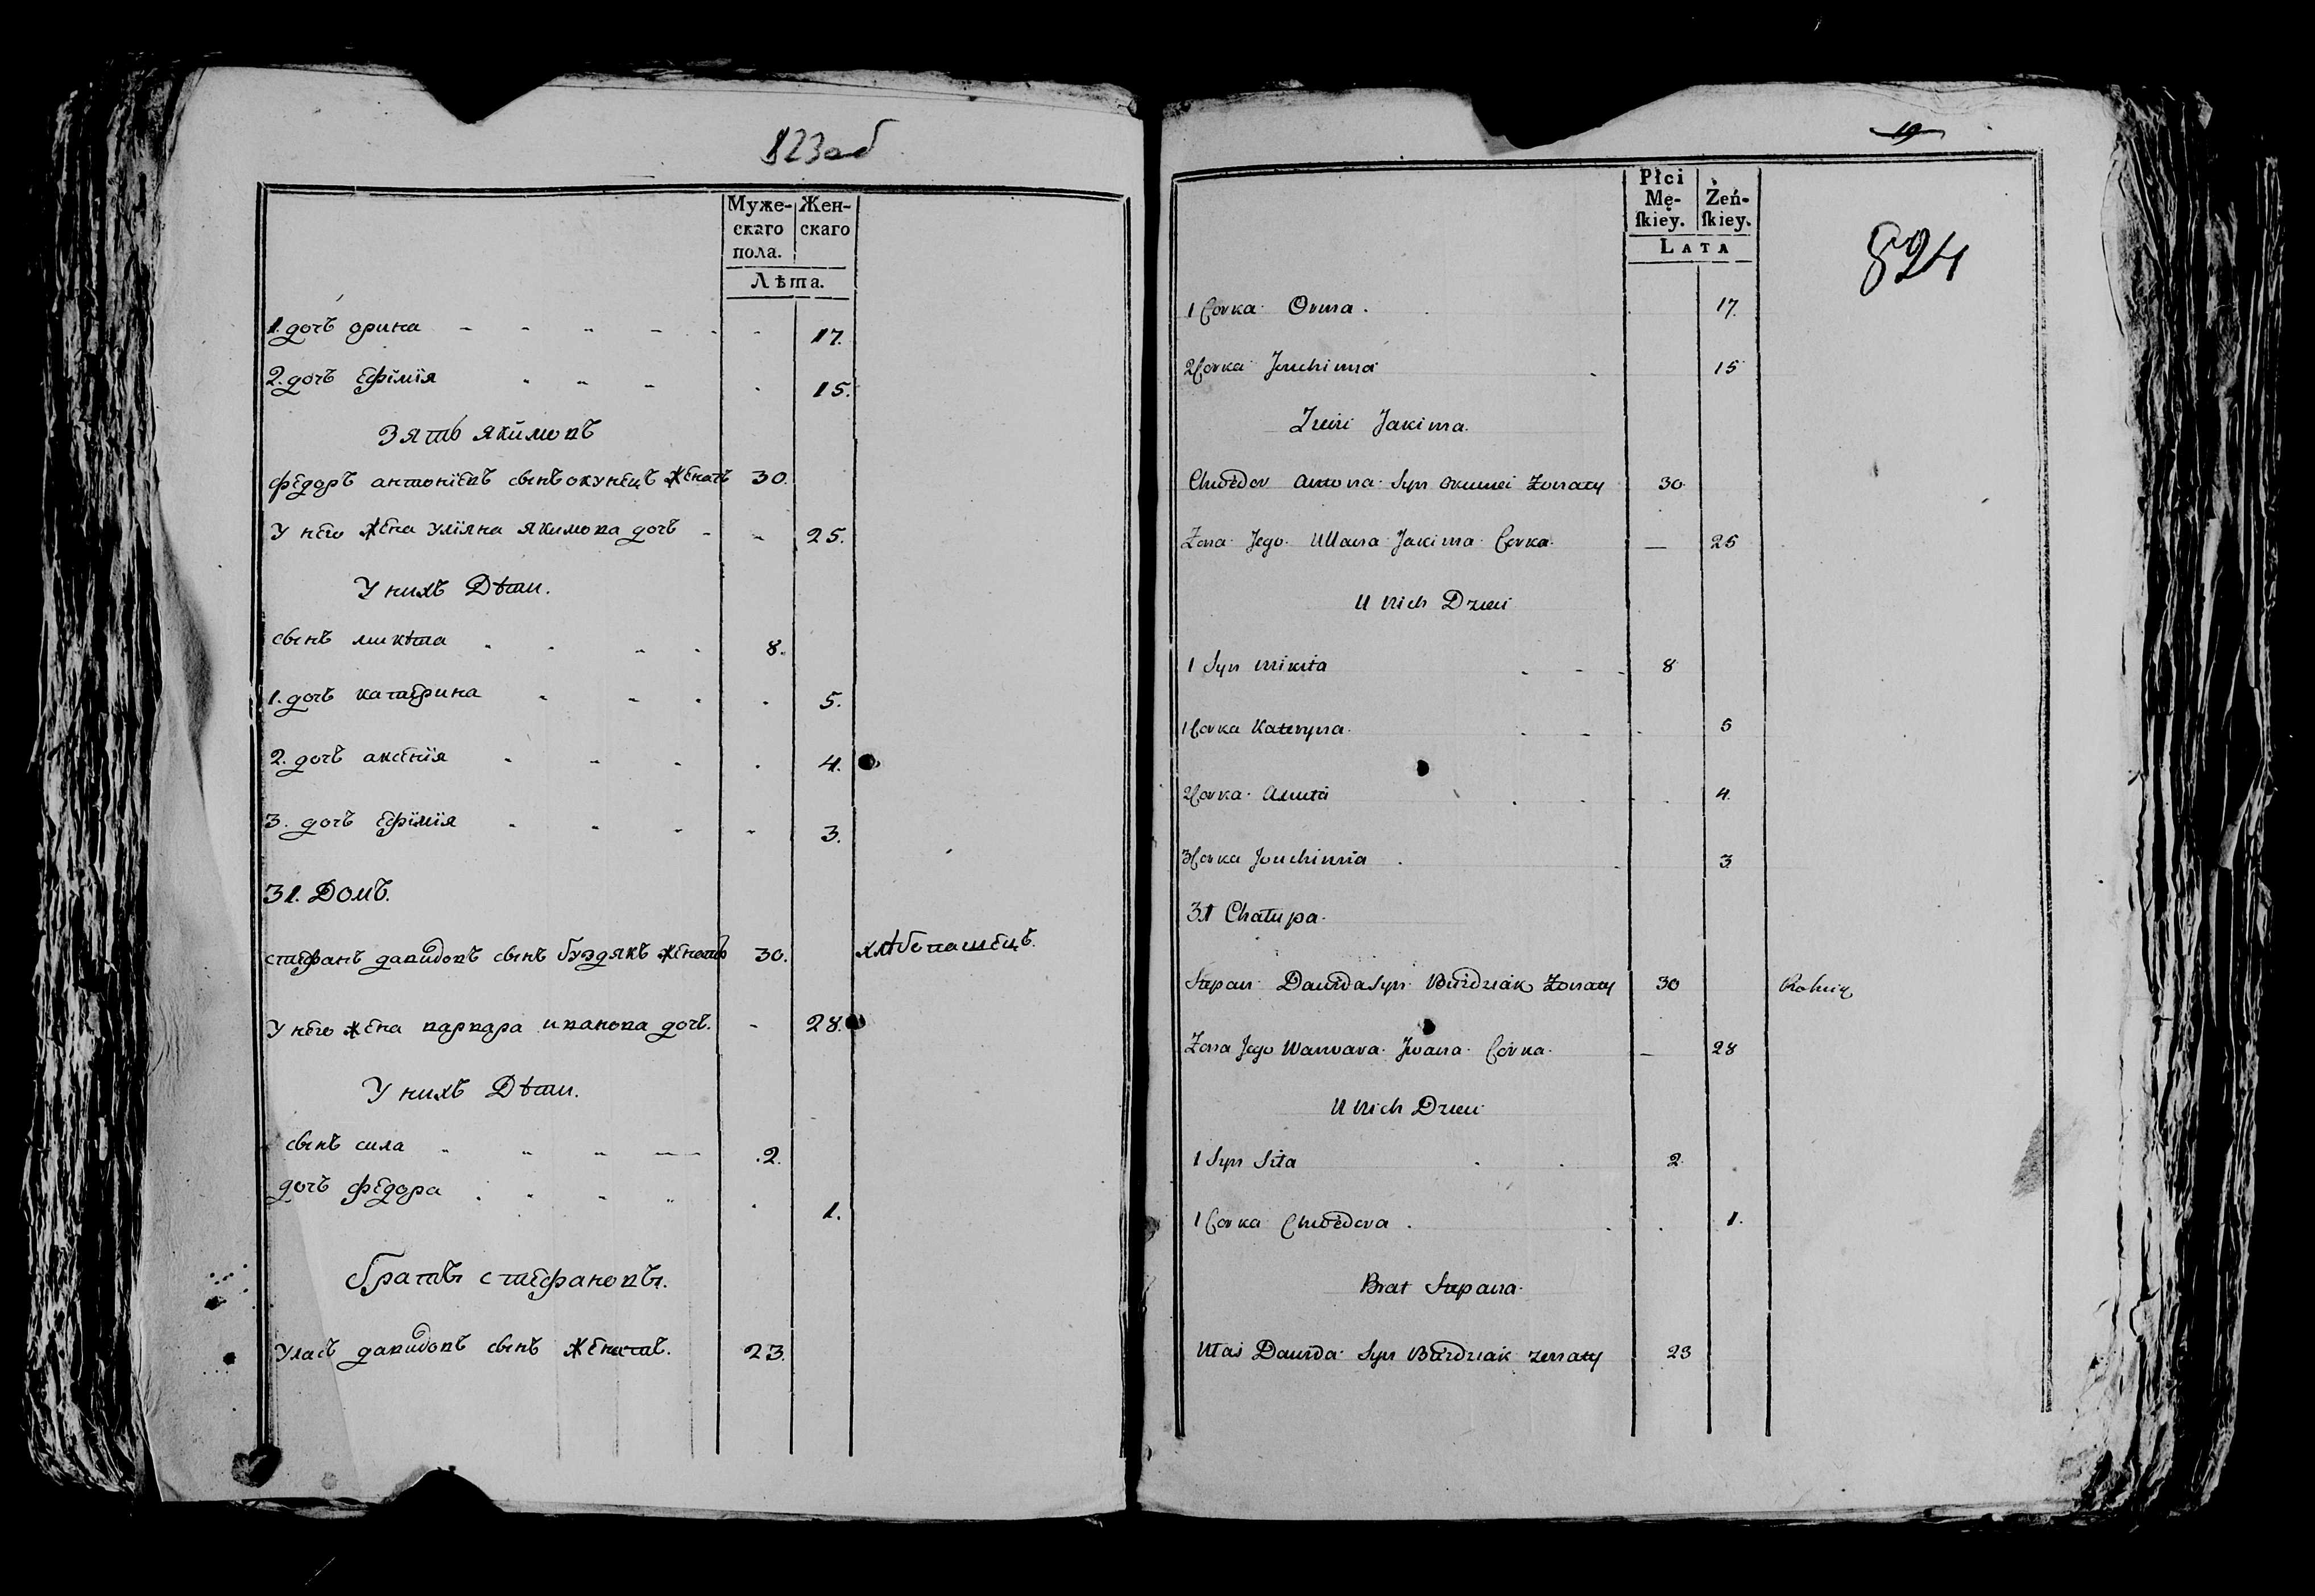 823 об
Муже-
скаго
пола.
Жен-
скаго
Лѣта.
1. дочъ орина 17.
2. дочъ Ефімія 15.
Зять якимовъ
федоръ антоніевъ сынъ окунецъ женатъ 30.
У него жена уліяна якимова дочъ 25.
У нихъ Дѣти.
сынъ микѣта 8.
1. дочъ катерина 5.
2. дочъ аксенія 4.
3. дочъ Ефімія 3.
31. Домъ.
стефанъ давидовъ сынъ буздякъ женатъ 30. хлѣбопашецъ.
У него жена варвара иванова дочъ. 28.
У нихъ Дѣти.
сынъ сила 2.
дочъ федора 1.
братъ стефановъ.
уласъ давидовъ сынъ женатъ. 23.
19
Płci
Mę-
ſkiey.
Żeń-
ſkiey.
LATA
824
1 Corka Oryna 17.
2 Corka Jouchima 15
Zieć Jakima.
Chwedor Antona Syn Okuniec Zonaty 30
Zona Jego Ullana Jakima Corka — 25
U Nich Dzieci
1 Syn Mikita 8
1 Corka Kateryna 5
2 Corka 4.
3 Corka Jouchimia 3
31 Chałupa.
Stepan Dawida Syn Buzdziak Zonaty 30 Rolnik
Zona Jego Warwara Jwana Corka — 28
U Nich Dzieci
1 Syn Siła 2
1 Corka Chwedora 1.
Brat Stepana
Ułas Dawida Syn Buzdziak zonaty 23